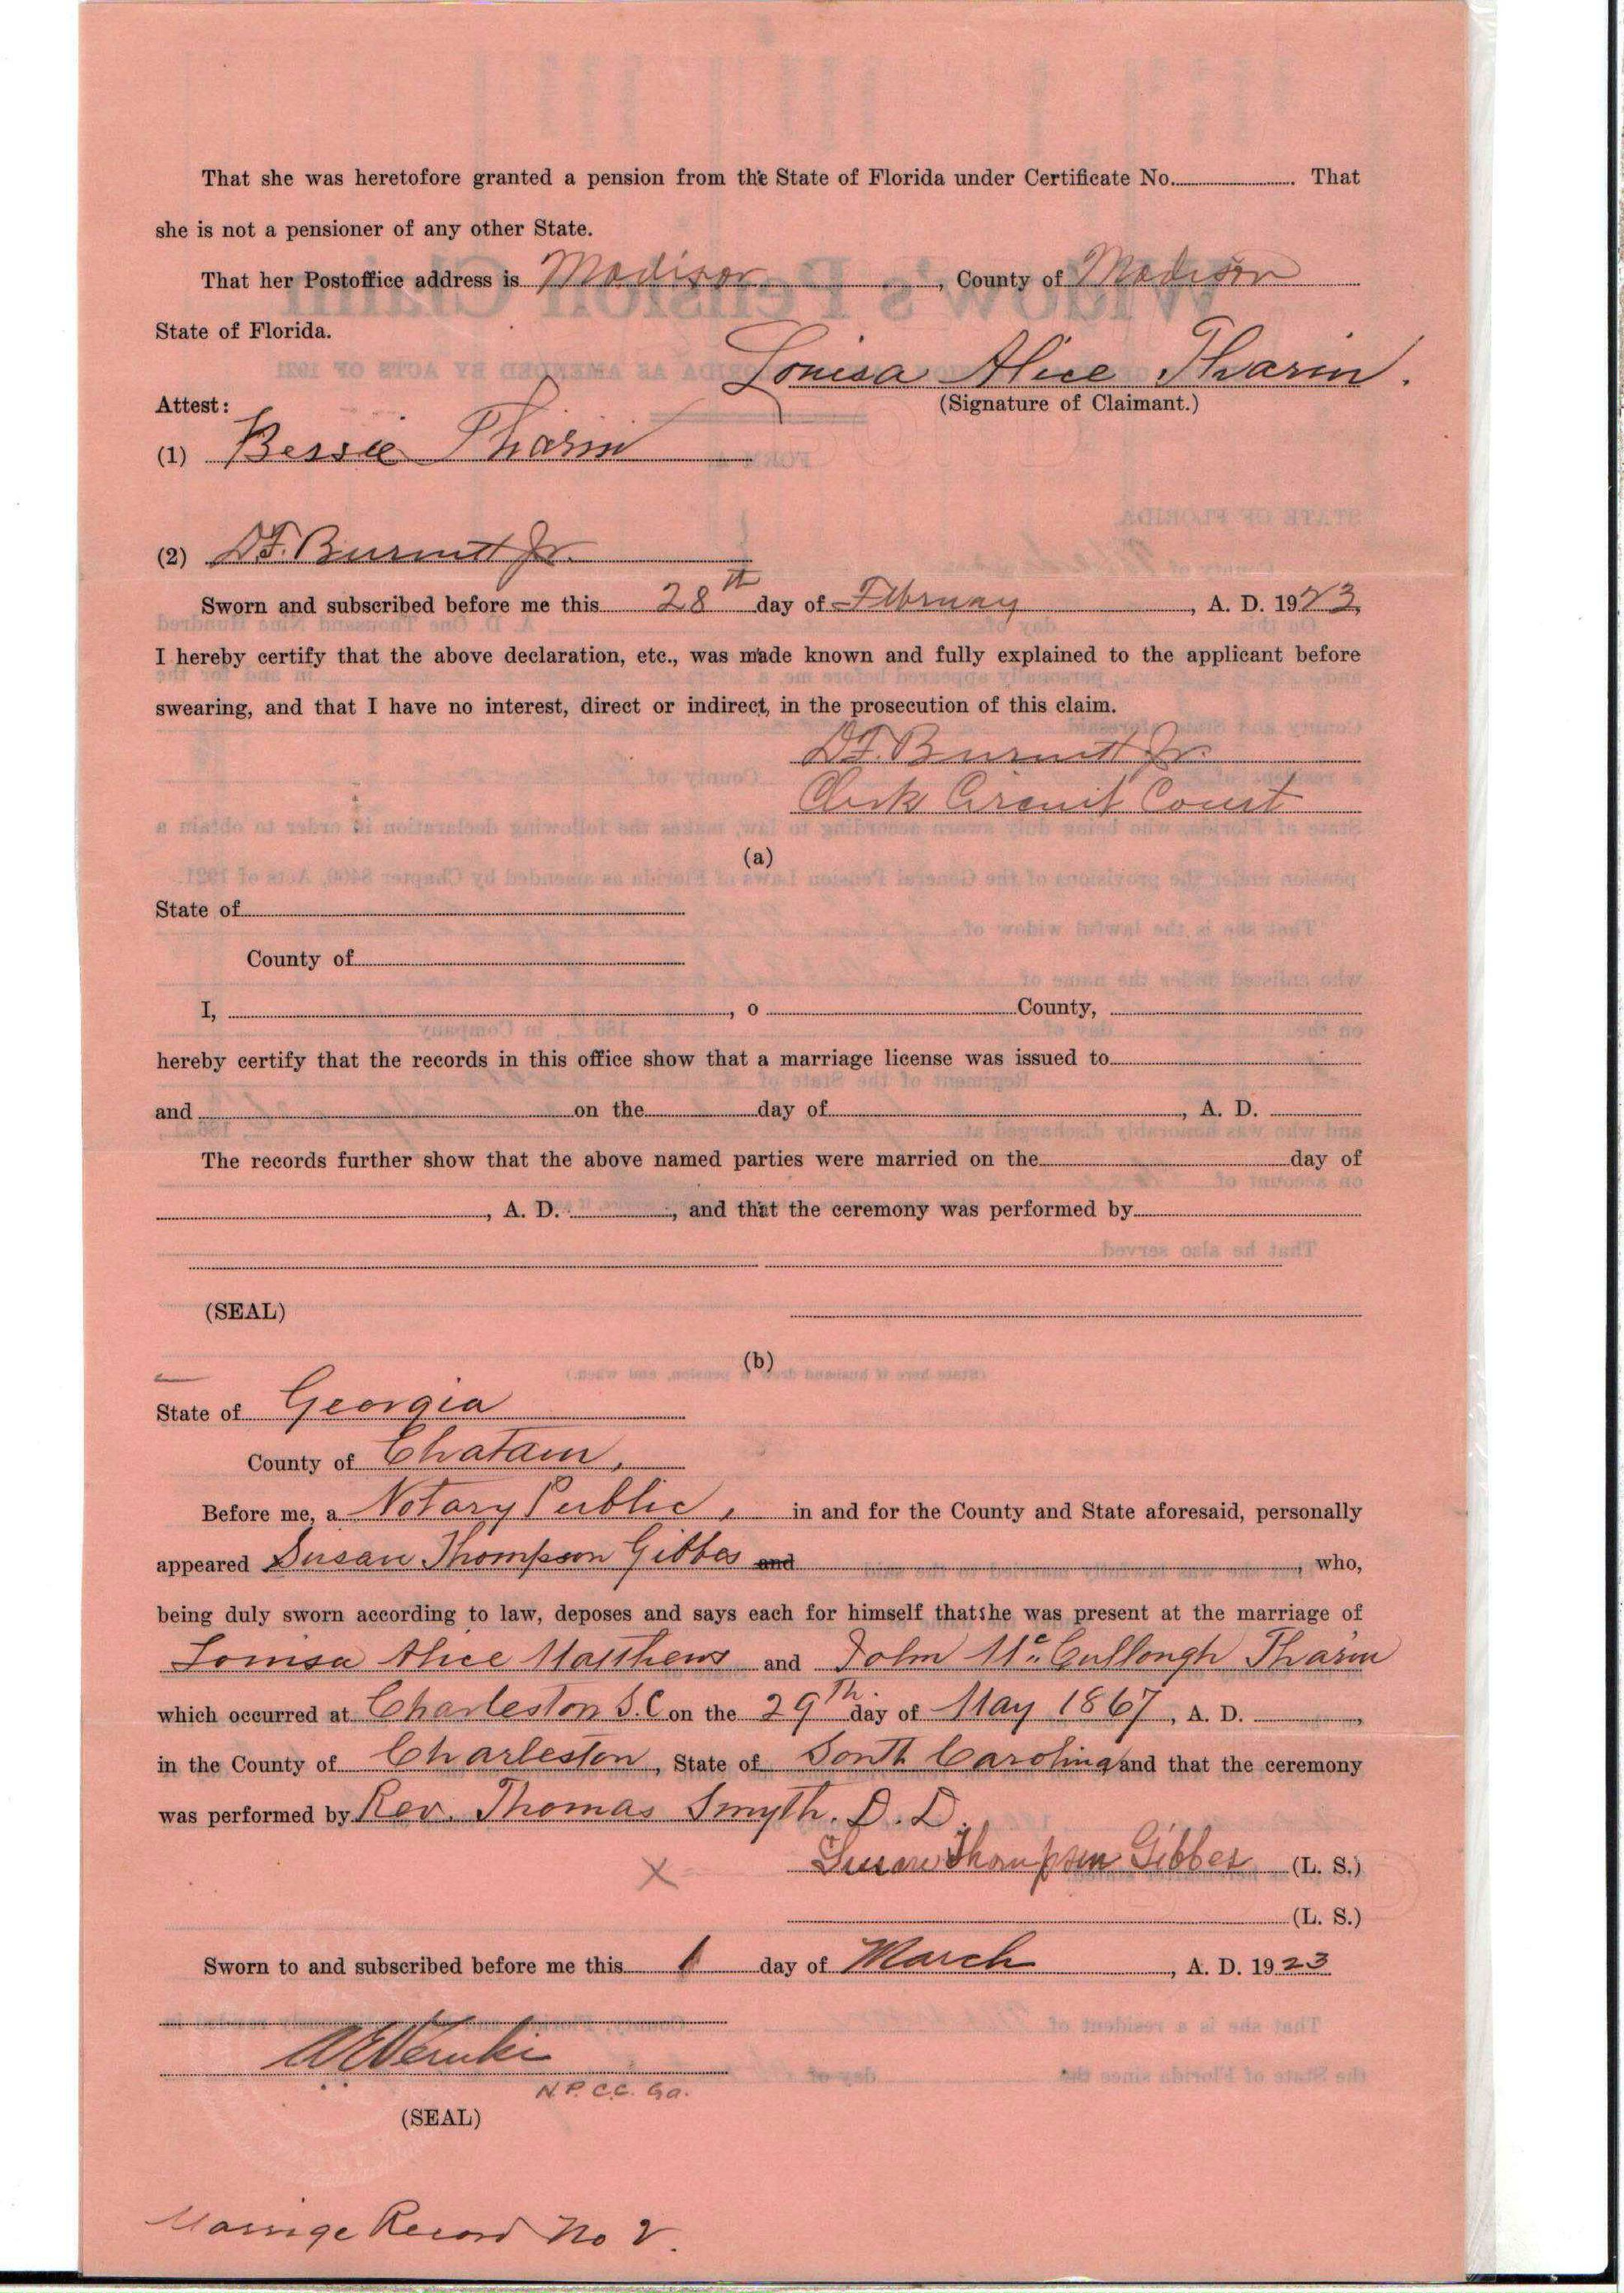 That she was heretofore granted a pension from the State of Florida under Certificate No. . That
she is not a pensioner of any other State.
That her Postoffice address is Madison , County of Madison
State of Florida.
Louisa Alice Tharin.
Attest: (Signature of Claimant.)
(1) Bessie Tharin
(2) D.F. Burnett Jr.
Sworn and subscribed before me this 28th day of February , A. D. 1923,
I hereby certify that the above declaration, etc., was made known and fully explained to the applicant before
swearing, and that I have no interest, direct or indirect, in the prosecution of this claim.
D.F. Burnett Jr.
Clerk Circuit Court
(a)
State of
County of
I, , o County,
hereby certify that the records in this office show that a marriage license was issued to
and on the day of , A. D.
The records further show that the above named parties were married on the day of
, A. D. , and that the ceremony was performed by
(SEAL)
(b)
State of Georgia
County of Chatam,
Before me, a Notary Public, in and for the County and State aforesaid, personally
appeared Susan Thompson Gibbes and , who,
being duly sworn according to law, deposes and says each for himself that she was present at the marriage of
Louisa Alice Matthews and John McCullough Tharin
which occurred at Charleston S.C on the 29th day of May 1867, A. D. ,
in the County of Charleston, State of South Carolina and that the ceremony
was performed by Rev. Thomas Smyth. D.D.
X Susan Thompson Gibbes (L. S.)
(L. S.)
Sworn to and subscribed before me this 1 day of March , A. D. 1923
N.P. C.C. Ga.
(SEAL)
Marriage Record No 2.